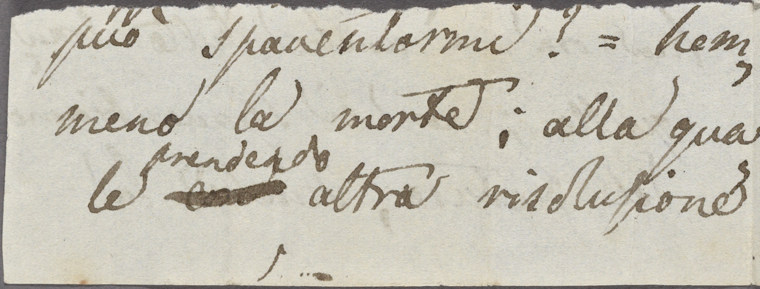 può spaventarmi? = nem,
meno la morte; alla qua
prendendo
le altra risoluzione